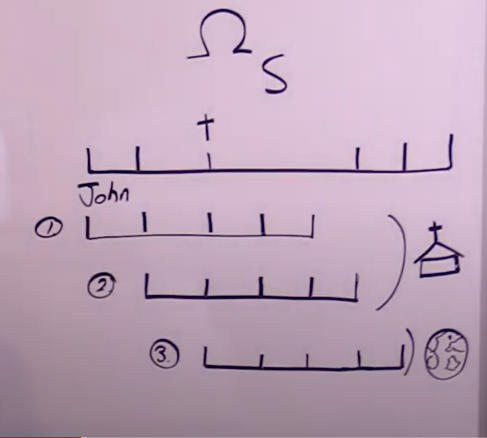 Ω
S
John
①
②
③.